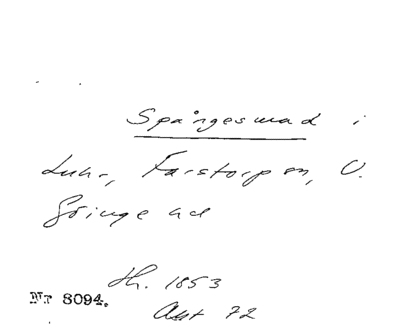 Spångesmad i
Luhr, Farstorp sn, V.
Göinge hd
Nr 8094.
Ih. 1853
Avst 72